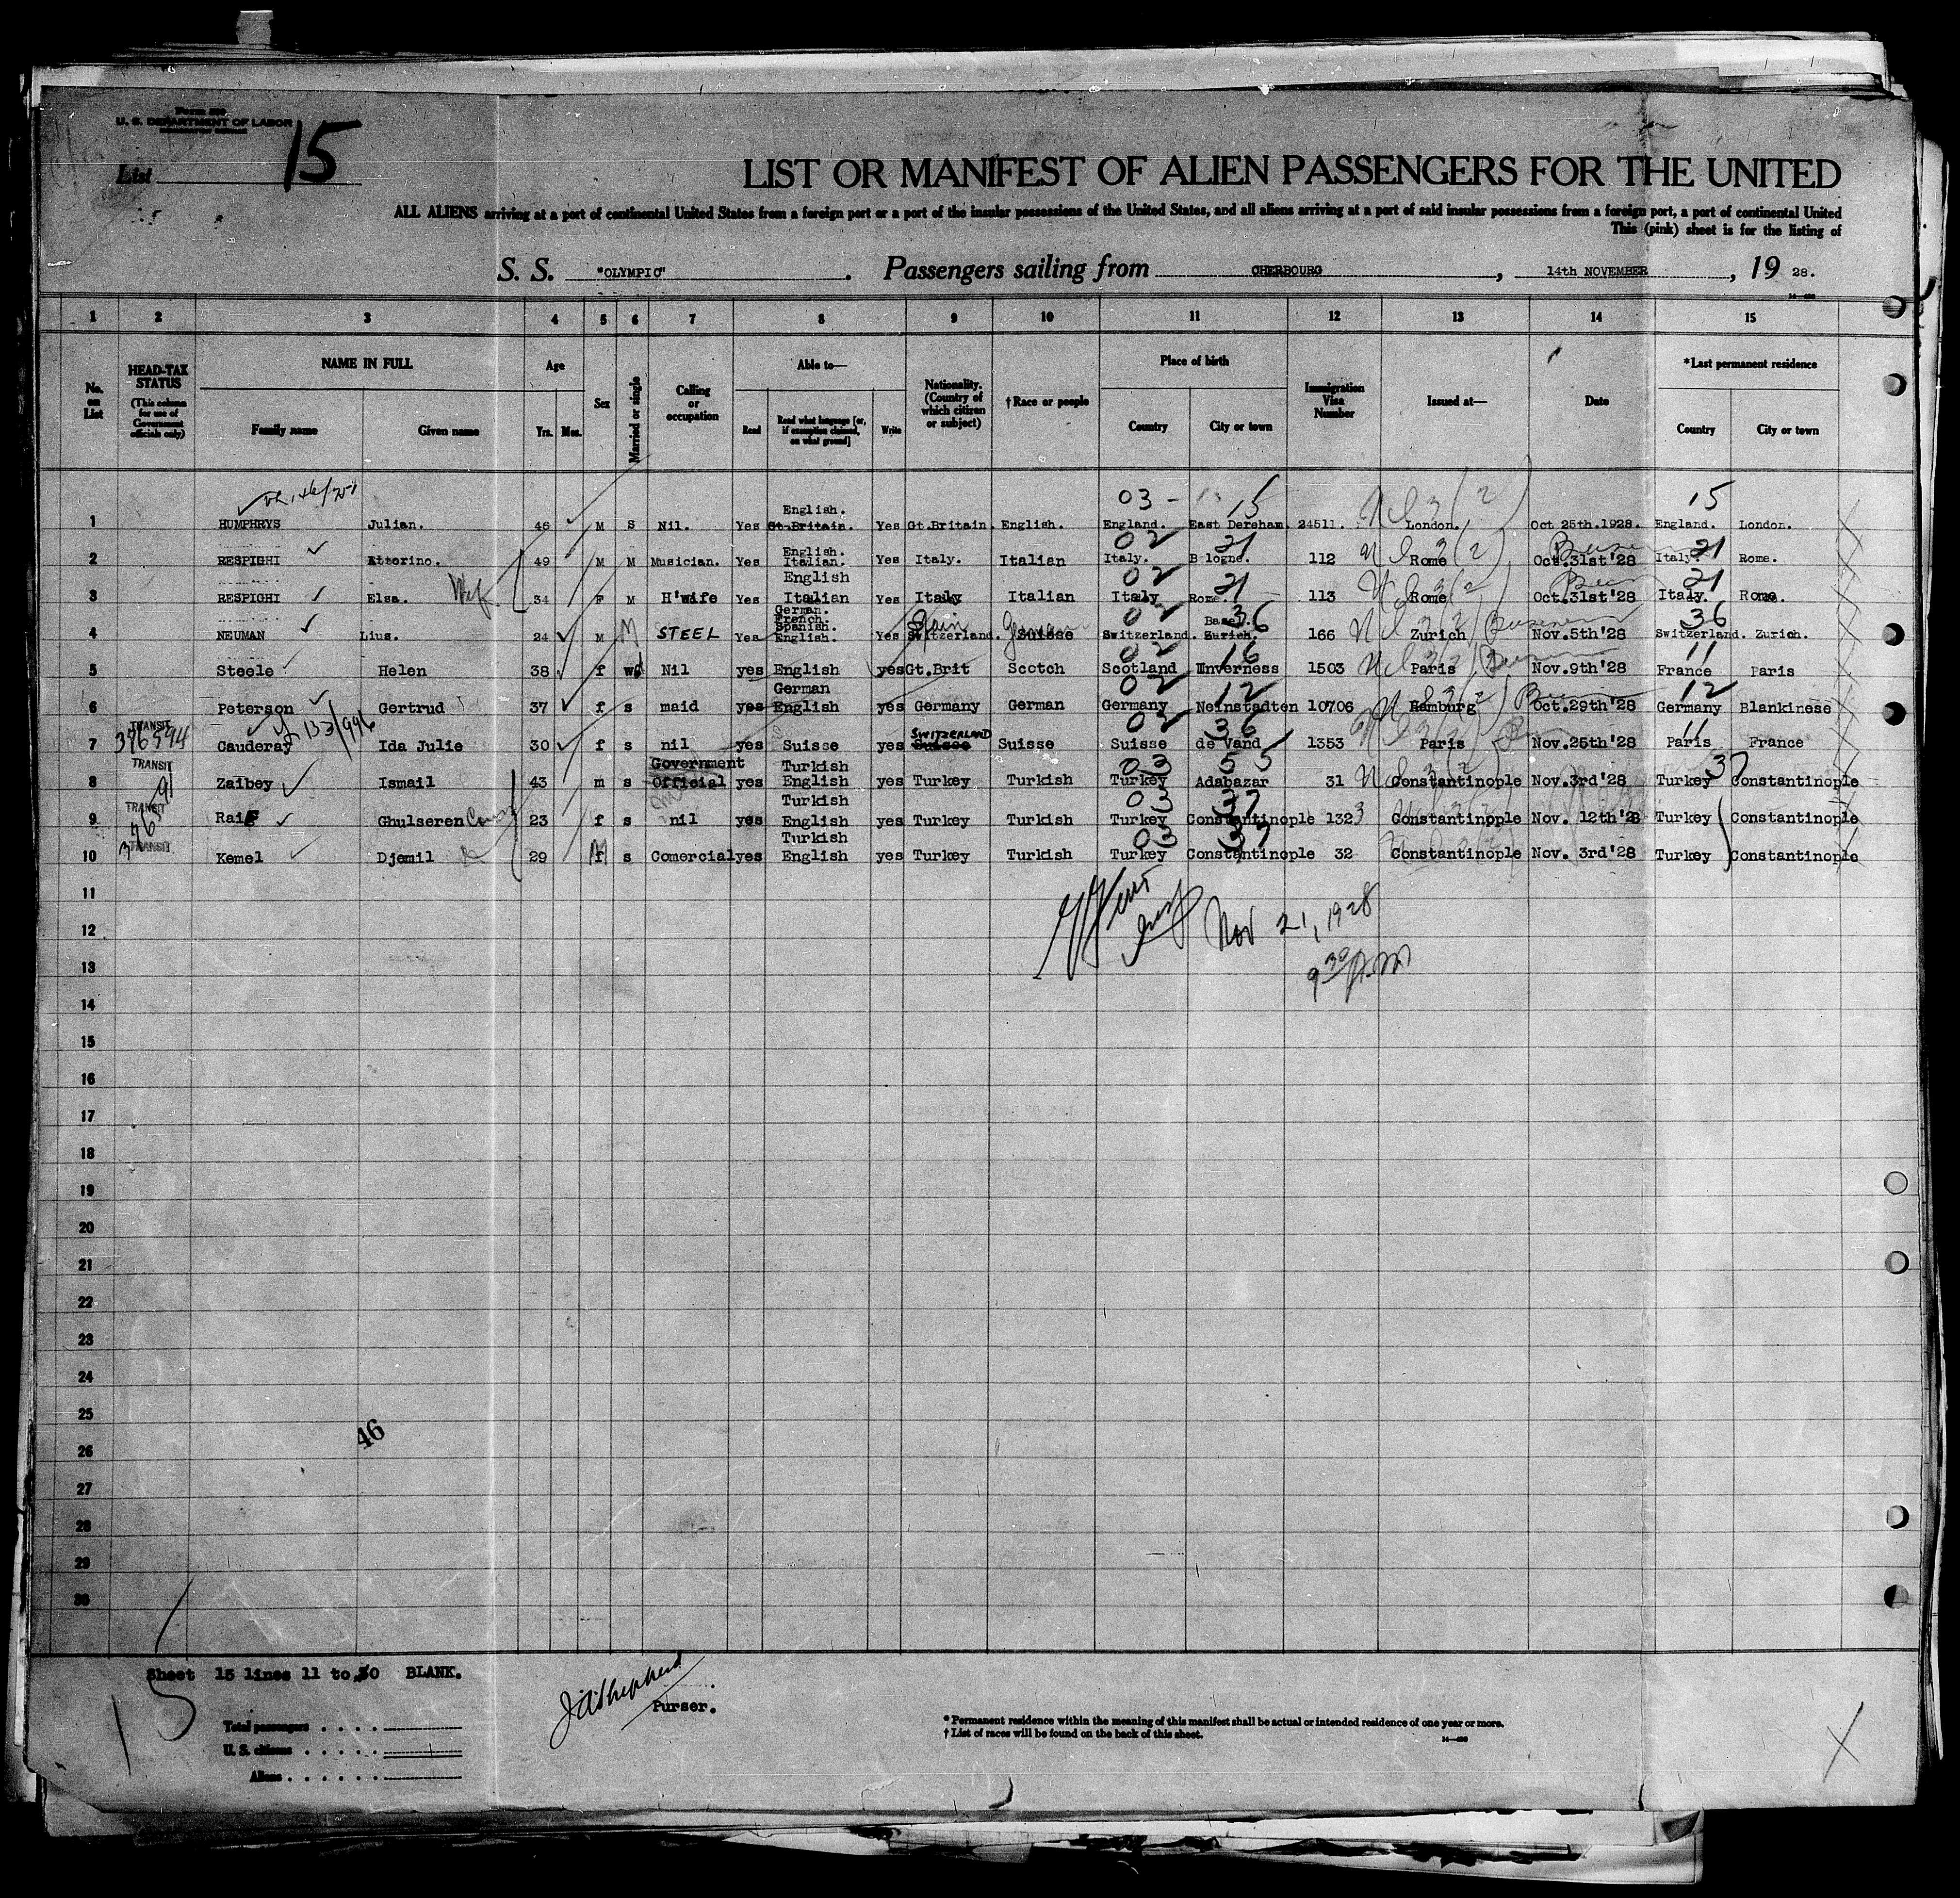 U. S. DEPARTMENT OF LABOR
List 15
LIST OR MANIFEST OF ALIEN PASSENGERS FOR THE UNITED
ALL ALIENS arriving at a port of continental United States from a foreign port or a port of the insular possessions of the United States, and all aliens arriving at a port of said insular possessions from a foreign port, a port of continental United
This (pink) sheet is for the listing of
S. S. "OLYMPIC" . Passengers sailing from CHERBOURG , 14th NOVEMBER , 19 28.
1 2 3 4 5 6 7 8 9 10 11 12 13 14 15
No. on List
HEAD-TAX STATUS (This column for use of Government officials only)
NAME IN FULL Family name Given name
Age Yrs. Mos.
Sex
Married or single
Calling or occupation
Able to— Read Read what language [or, if exemption claimed, on what ground] Write
Nationality. (Country of which citizen or subject)
† Race or people
Place of birth Country City or town
Immigration Visa Number
Issued at—
Date
*Last permanent residence Country City or town
03 - 15 15
1 HUMPHRYS Julian. 46 M S Nil. Yes English. Gt.Britain. Yes Gt.Britain. English. England. East Dereham. 24511. London. Oct 25th.1928. England. London.
02 21 21
2 RESPIGHI Attorino. 49 M M Musician. Yes English. Italian. Yes Italy. Italian Italy. Bologne. 112 Rome Oct.31st'28 Italy. Rome.
02 21 21
3 RESPIGHI Elsa. Wife 34 F M H'wife Yes English Italian Yes Italy Italian Italy Rome. 113 Rome Oct.31st'28 Italy. Rome.
02 36 36
4 NEUMAN Lius. 24 M M STEEL Yes German. French. Spanish. English. Yes Spain Switzerland. German Suisse Switzerland. Basel. Zurich. 166 Zurich Nov.5th'28 Switzerland. Zurich.
02 16 11
5 Steele Helen 38 f wd Nil yes English yes Gt.Brit Scotch Scotland Inverness 1503 Paris Nov.9th'28 France Paris
02 12 12
6 Peterson Gertrud 37 f s maid yes German English yes Germany German Germany Neinstadten 10706 Hamburg Oct.29th'28 Germany Blankinese
TRANSIT 376594 02 36 11
7 Cauderay Ida Julie 30 f s nil yes Suisse yes SWITZERLAND Suisse Suisse Suisse de Vand 1353 Paris Nov.25th'28 Paris France
TRANSIT 03 55 37
8 Zaibey Ismail 43 m s Government Official yes Turkish English yes Turkey Turkish Turkey Adabazar 31 Constantinople Nov.3rd'28 Turkey Constantinople
TRANSIT 03 37
9 Raif Ghulseren 23 f s nil yes Turkish English yes Turkey Turkish Turkey Constantinople 1323 Constantinople Nov. 12th'28 Turkey Constantinople
TRANSIT 03 37
10 Kemel Djemil 29 M s Comercial yes Turkish English yes Turkey Turkish Turkey Constantinople 32 Constantinople Nov. 3rd'28 Turkey Constantinople
11
12 Nov 21, 1928
13 9 30 P.M
14
15
16
17
18
19
20
21
22
23
24
25
46
26
27
28
29
30
Sheet 15 lines 11 to 30 BLANK.
15
J A Shepherd
Purser.
Total passengers
U. S. citizens
Aliens
* Permanent residence within the meaning of this manifest shall be actual or intended residence of one year or more.
† List of races will be found on the back of this sheet.